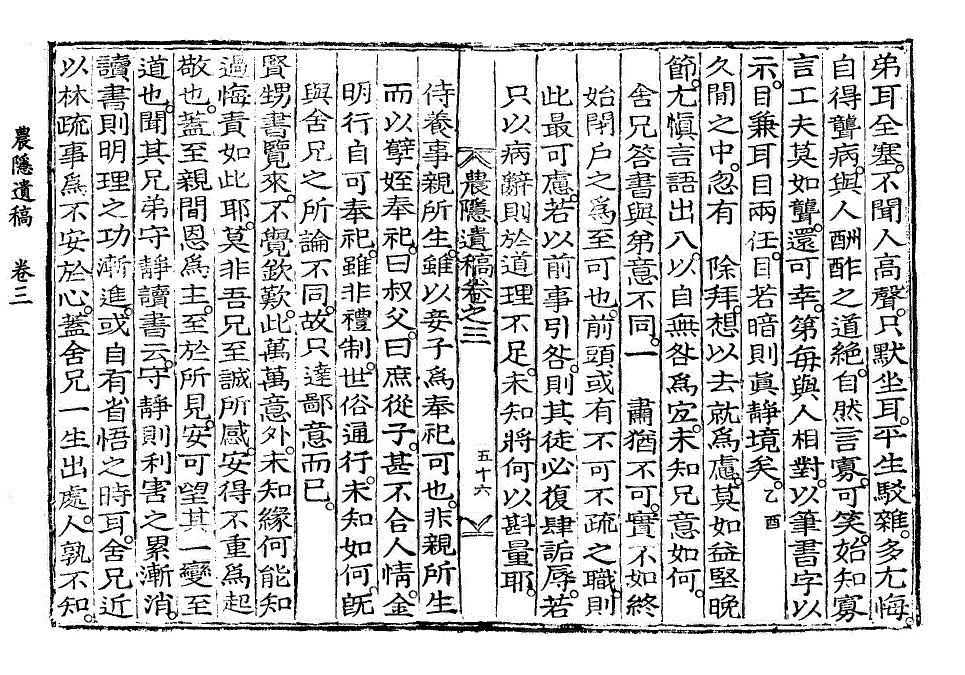 弟耳全塞。不聞人高聲。只默坐耳。平生駁雜。多尤悔。
自得聾病。與人酬酢之道絕。自然言寡。可笑。始知寡
言工夫莫如聾。還可幸。第每與人相對。以筆書字以
示。目兼耳目兩任。目若暗則眞靜境矣。乙酉
久閒之中。忽有 除拜。想以去就爲慮。莫如益堅晩
節。尤愼言語出入。以自無咎爲宜。未知兄意如何。
舍兄答書與弟意不同。一 肅猶不可。實不如終
始閉戶之爲至可也。前頭或有不可不疏之職。則
此最可慮。若以前事引咎。則其徒必復肆詬辱。若
只以病辭則於道理不足。未知將何以斟量耶。
農隱遺稿卷之三
五十六
侍養事親所生。雖以妾子爲奉祀可也。非親所生
而以孼姪奉祀。曰叔父。曰庶從子。甚不合人情。金
明行自可奉祀。雖非禮制。世俗通行。未知如何。旣
與舍兄之所論不同。故只達鄙意而已。
賢甥書覽來。不覺欽歎。此萬萬意外。未知緣何能知
過悔責如此耶。莫非吾兄至誠所感。安得不重爲起
敬也。蓋至親間恩爲主。至於所見。安可望其一變至
道也。聞其兄弟守靜讀書云。守靜則利害之累漸消。
讀書則明理之功漸進。或自有省悟之時耳。舍兄近
以林疏事爲不安於心。蓋舍兄一生出處。人孰不知
農隱遺稿 卷三